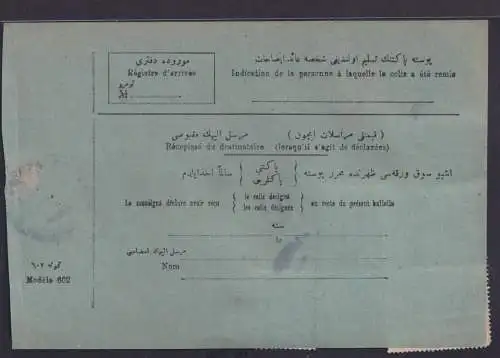 موروده دفترى
Régistre d'arrivée
نومرو
№
پوسته پاكتنك تسليم اولنديغى شخصه عائد ايضاحات
Indication de la personne à laquelle le colis a été remis
مرسل اليهك مقبوضى ( قيمتلى مراسلات ايچون )
Récépissé du destinataire (lorsqu'il s'agit de déclarées)
اشبو سوق ورقه‌سى ظهرنده محرر پوسته { پاكتى پاكتلرينى } سالماً اخذ ايلدم
Le soussigné déclare avoir reçu { le colis désigné les colis désignés } au recto du présent bulletin
سنه
le
مرسل اليهك امضاسى
Nom
نمونه ٦٠٢
Modèle 602